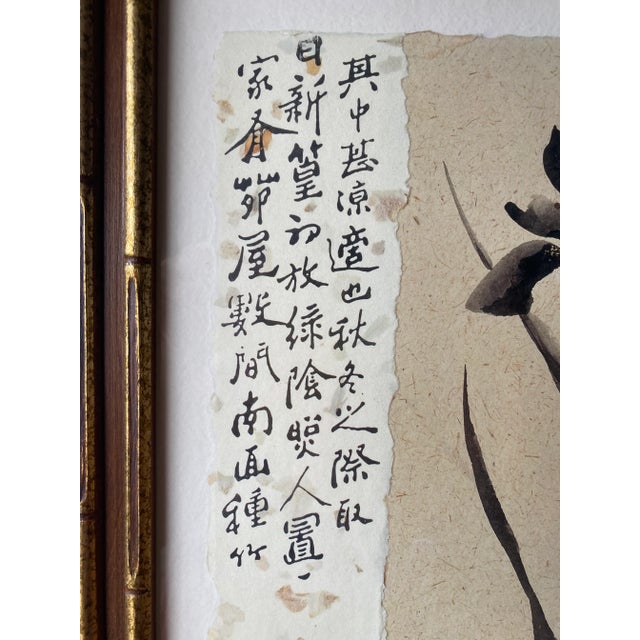 家有茆屋數間南面種竹
日新篁初放綠陰照人置一
其中甚凉適也秋冬之際取